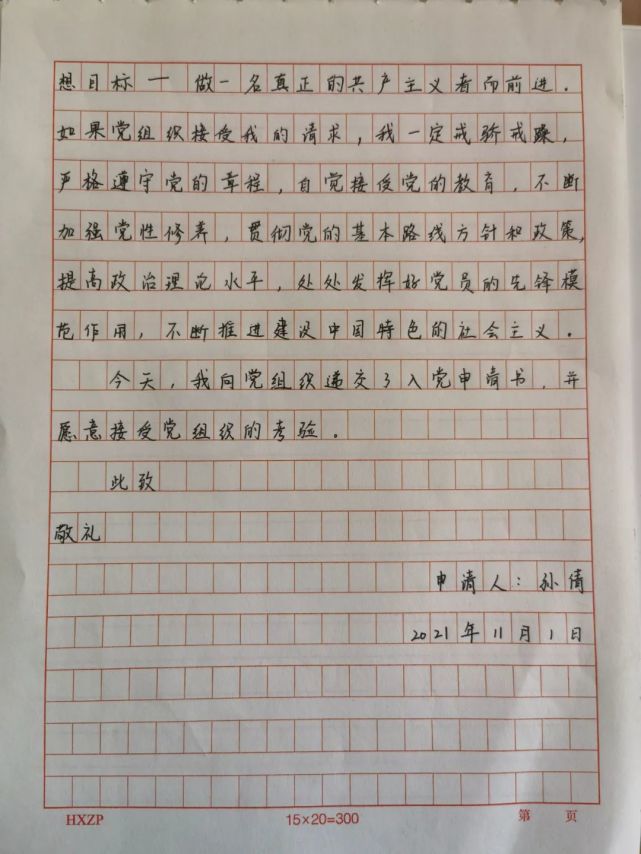 想目标一 做一名真正的共产主义者而前进.
如果党组织接受我的请求,我一定戒骄戒躁,
严格遵守党的章程,自觉接受党的教育,不断
加强党性修养,贯彻党的基本路线方针和政策,
提高政治理论水平,处处发挥好党员的先锋模
范作用,不断推进建设中国特色的社会主义.
今天,我向党组织递交了入党申请书,并
愿意接受党组织的考验.
此致
敬礼
申请人:孙倩
2021年11月1日
HXZP 15×20=300 第 页